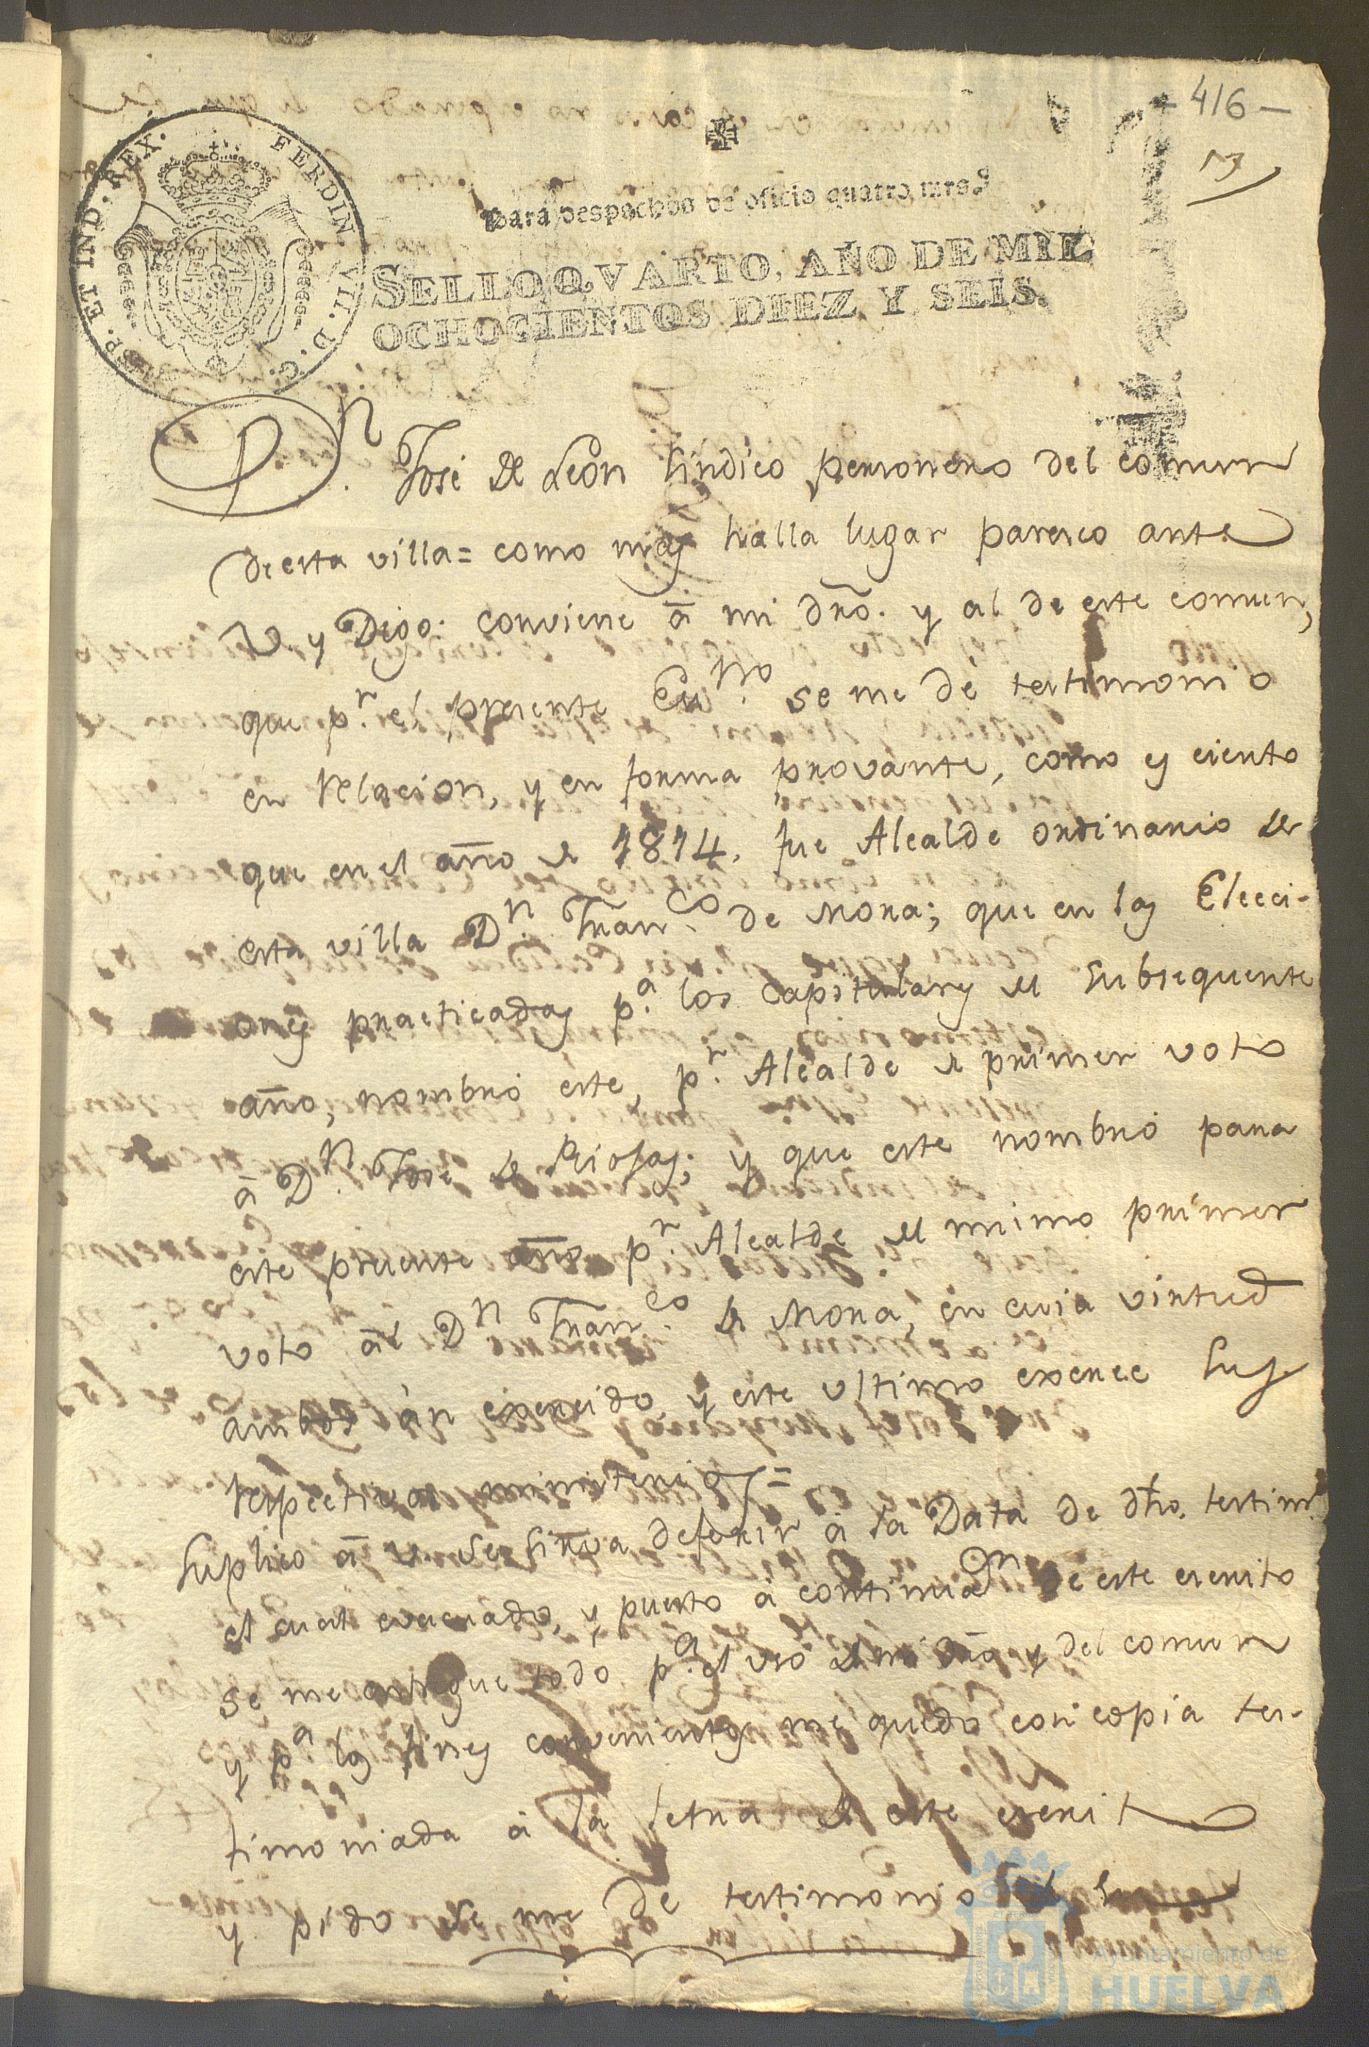 416
13
Para despachos de oficio quatro mrs.
SELLO QVARTO, AÑO DE MIL
OCHOCIENTOS DIEZ Y SEIS.
HISP. ET IND. REX. FERDIN. VII. D. G.
Dn. José de León sindico personero del comun
de esta villa = como mas halla lugar paresco ante
V y Digo: conviene à mi dro. y al de este comun,
que pr. el presente Esno. se me dé testimonio
en relacion, y en forma provante, como es cierto
que en el año de 1814. fue Alcalde ordinario de
esta villa Dn. Franco. de Mora; que en las Elecci-
ones practicadas pa. los capitulares del subsequente
año, nombró este, pr. Alcalde de primer voto
à Dn. Jose de Riofas; y que este nombró para
este presente año pr. Alcalde del mismo primer
voto al Dn. Franco. de Mora, en cuia virtud
ambos àn exercido, y este ultimo exerce sus
respectivos ministerios =
Suplico à V se sirva deferir à la Data de dho. testimo.
el cual evacuado, y puesto à continuaon. de este escrito
se me entregue todo pa. el uso de mi dro. y del comun
y pa. los fines convenientes me quedo con copia tes-
timoniada à la letra de este escrito
y pido se me de testimonio
Ayuntamiento de
HUELVA